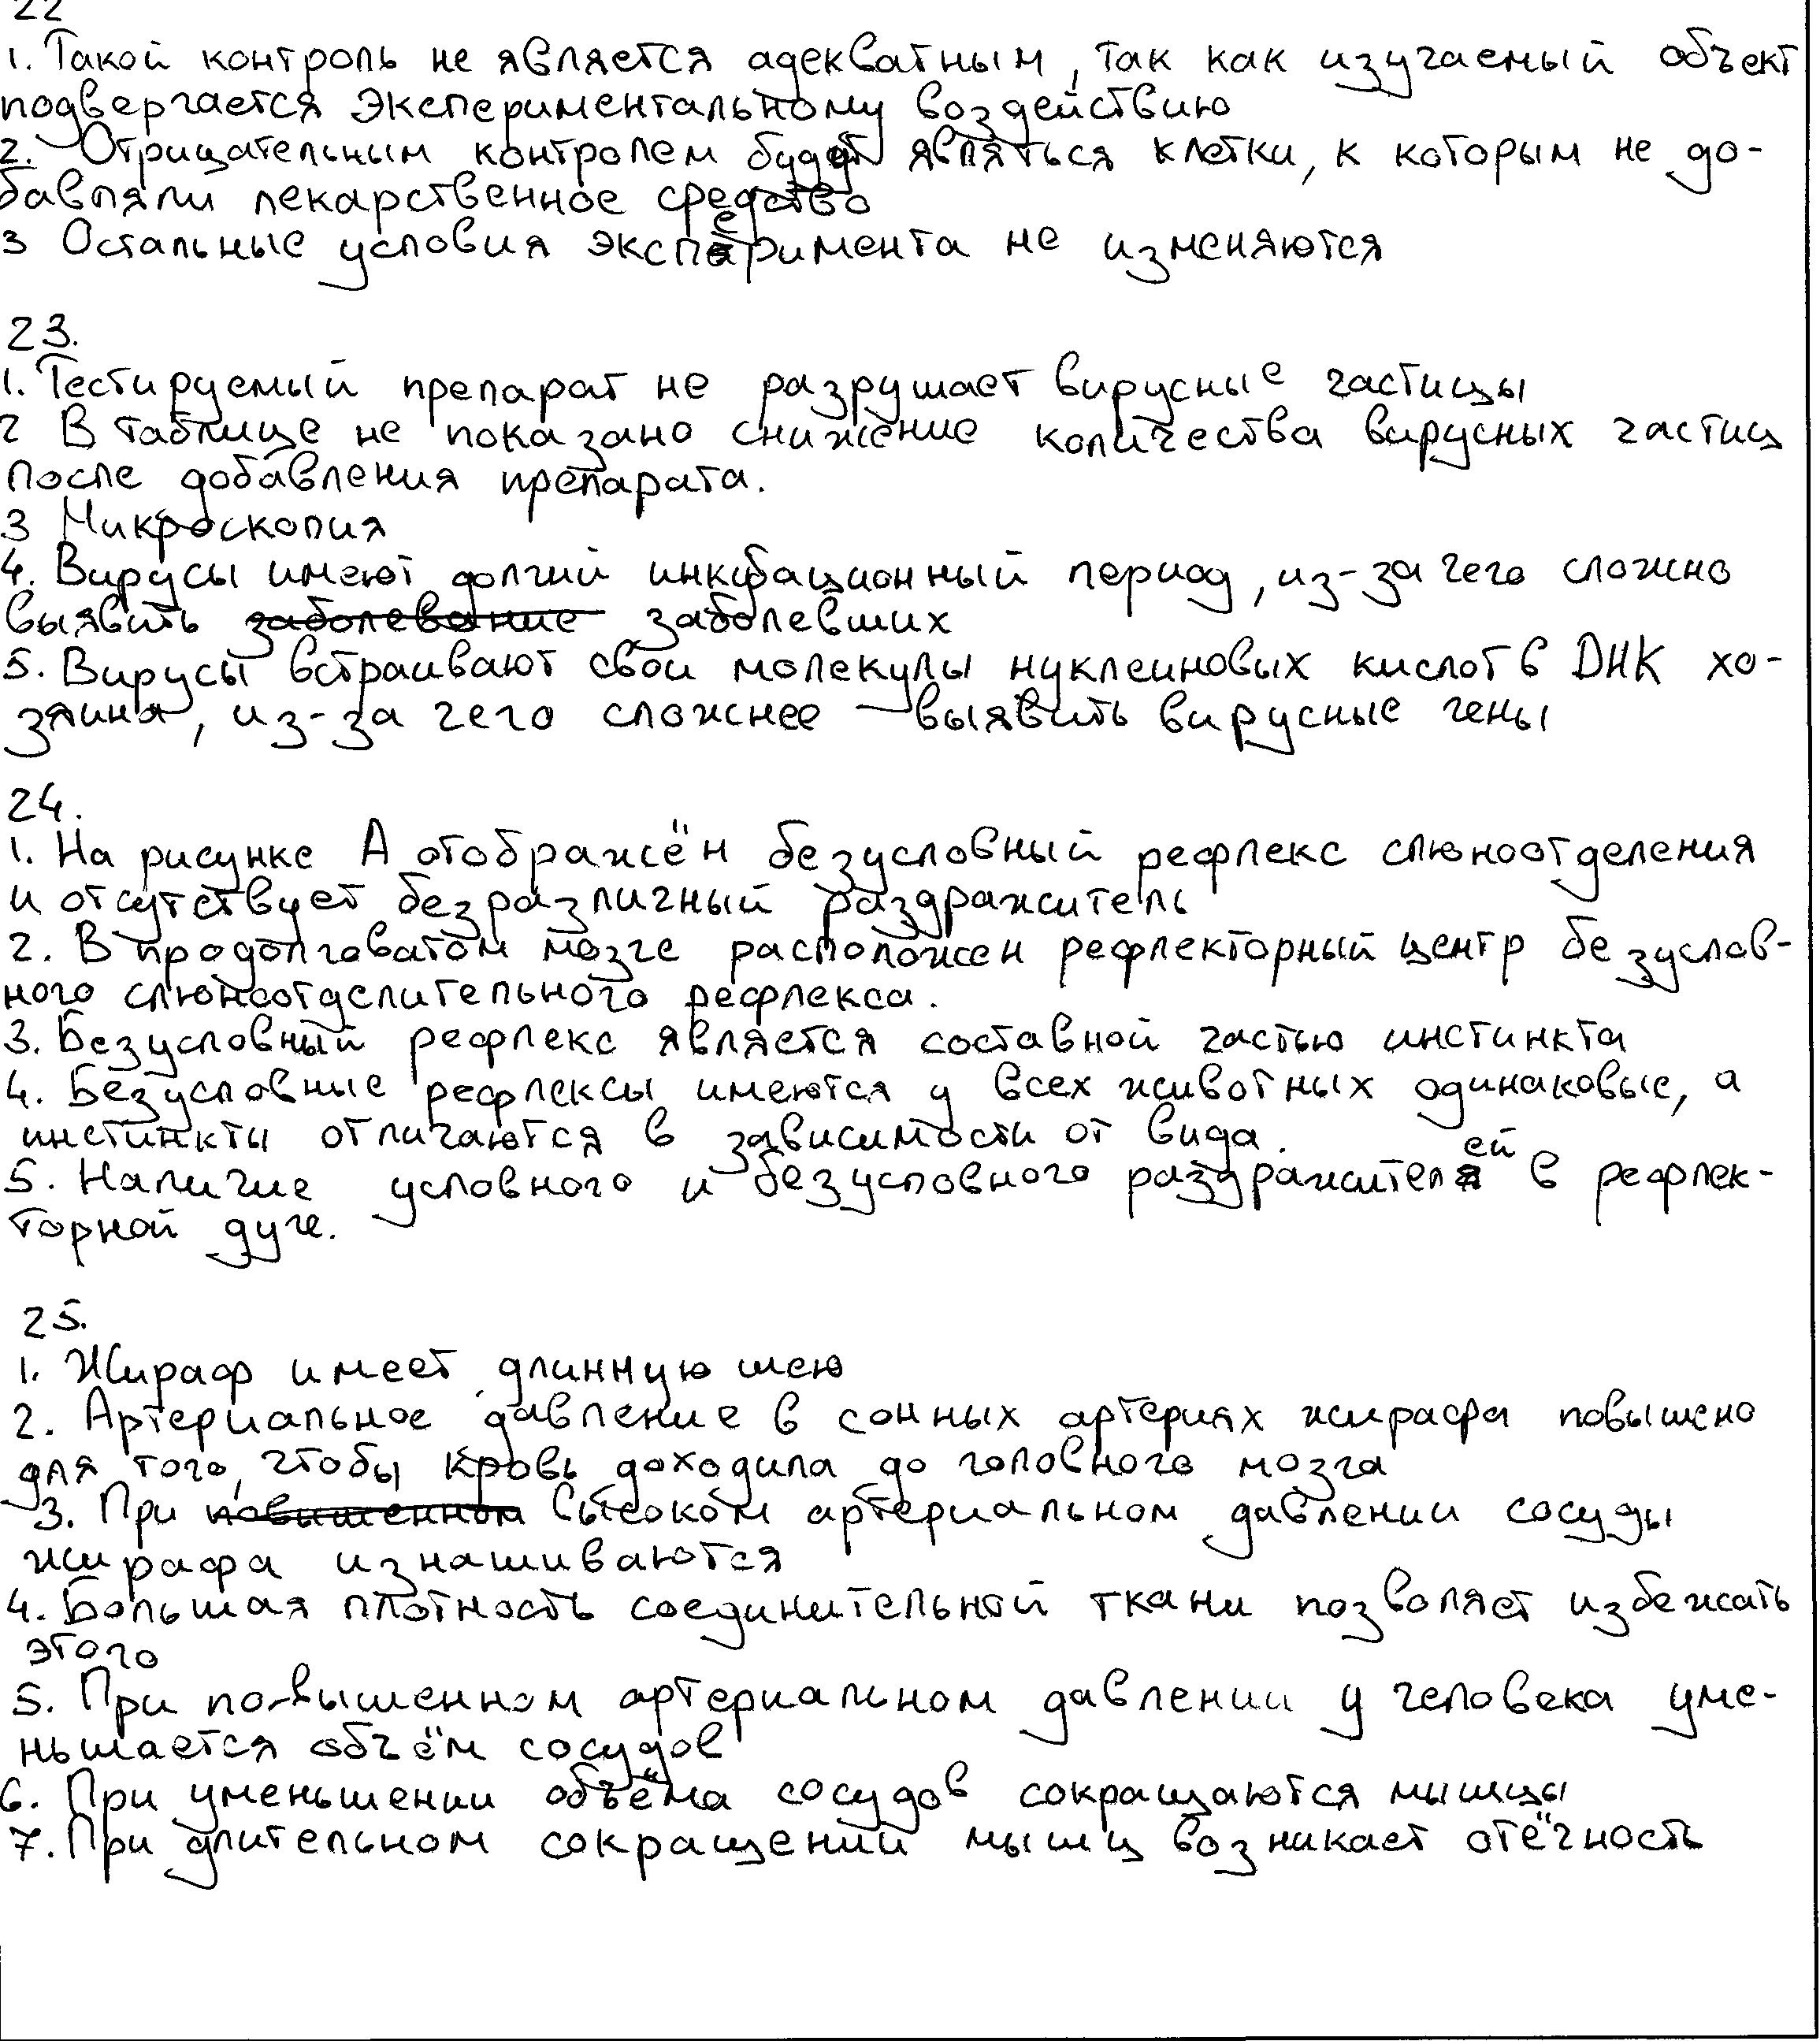 22
1. Такой контроль не является адекватным, так как изучаемый объект
подвергается экспериментальному воздействию
2. Отрицательным контролем будут являться клетки, к которым не до-
бавляли лекарственное средство
3 Остальные условия эксперимента не изменяются
23.
1. Тестируемый препарат не разрушает вирусные частицы
2 В таблице не показано снижение количества вирусных частиц
после добавления препарата.
3 Микроскопия
4. Вирусы имеют долгий инкубационный период, из-за чего сложно
выявить заболевание заболевших
5. Вирусы встраивают свои молекулы нуклеиновых кислот в ДНК хо-
зяина, из-за чего сложнее выявить вирусные гены
24.
1. На рисунке А отображён безусловный рефлекс слюноотделения
и отсутствует безразличный раздражитель
2. В продолговатом мозге расположен рефлекторный центр безуслов-
ного слюноотделительного рефлекса.
3. Безусловный рефлекс является составной частью инстинкта
4. Безусловные рефлексы имеются у всех животных одинаковые, а
инстинкты отличаются в зависимости от вида.
5. Наличие условного и безусловного раздражителей в рефлек-
торной дуге.
25.
1. Жираф имеет длинную шею
2. Артериальное давление в сонных артериях жирафа повышено
для того, чтобы кровь доходила до головного мозга
3. При повышенном высоком артериальном давлении сосуды
жирафа изнашиваются
4. Большая плотность соединительной ткани позволяет избежать
этого
5. При повышенном артериальном давлении у человека уме-
ньшается объём сосудов
6. При уменьшении объёма сосудов сокращаются мышцы
7. При длительном сокращении мышц возникает отёчность